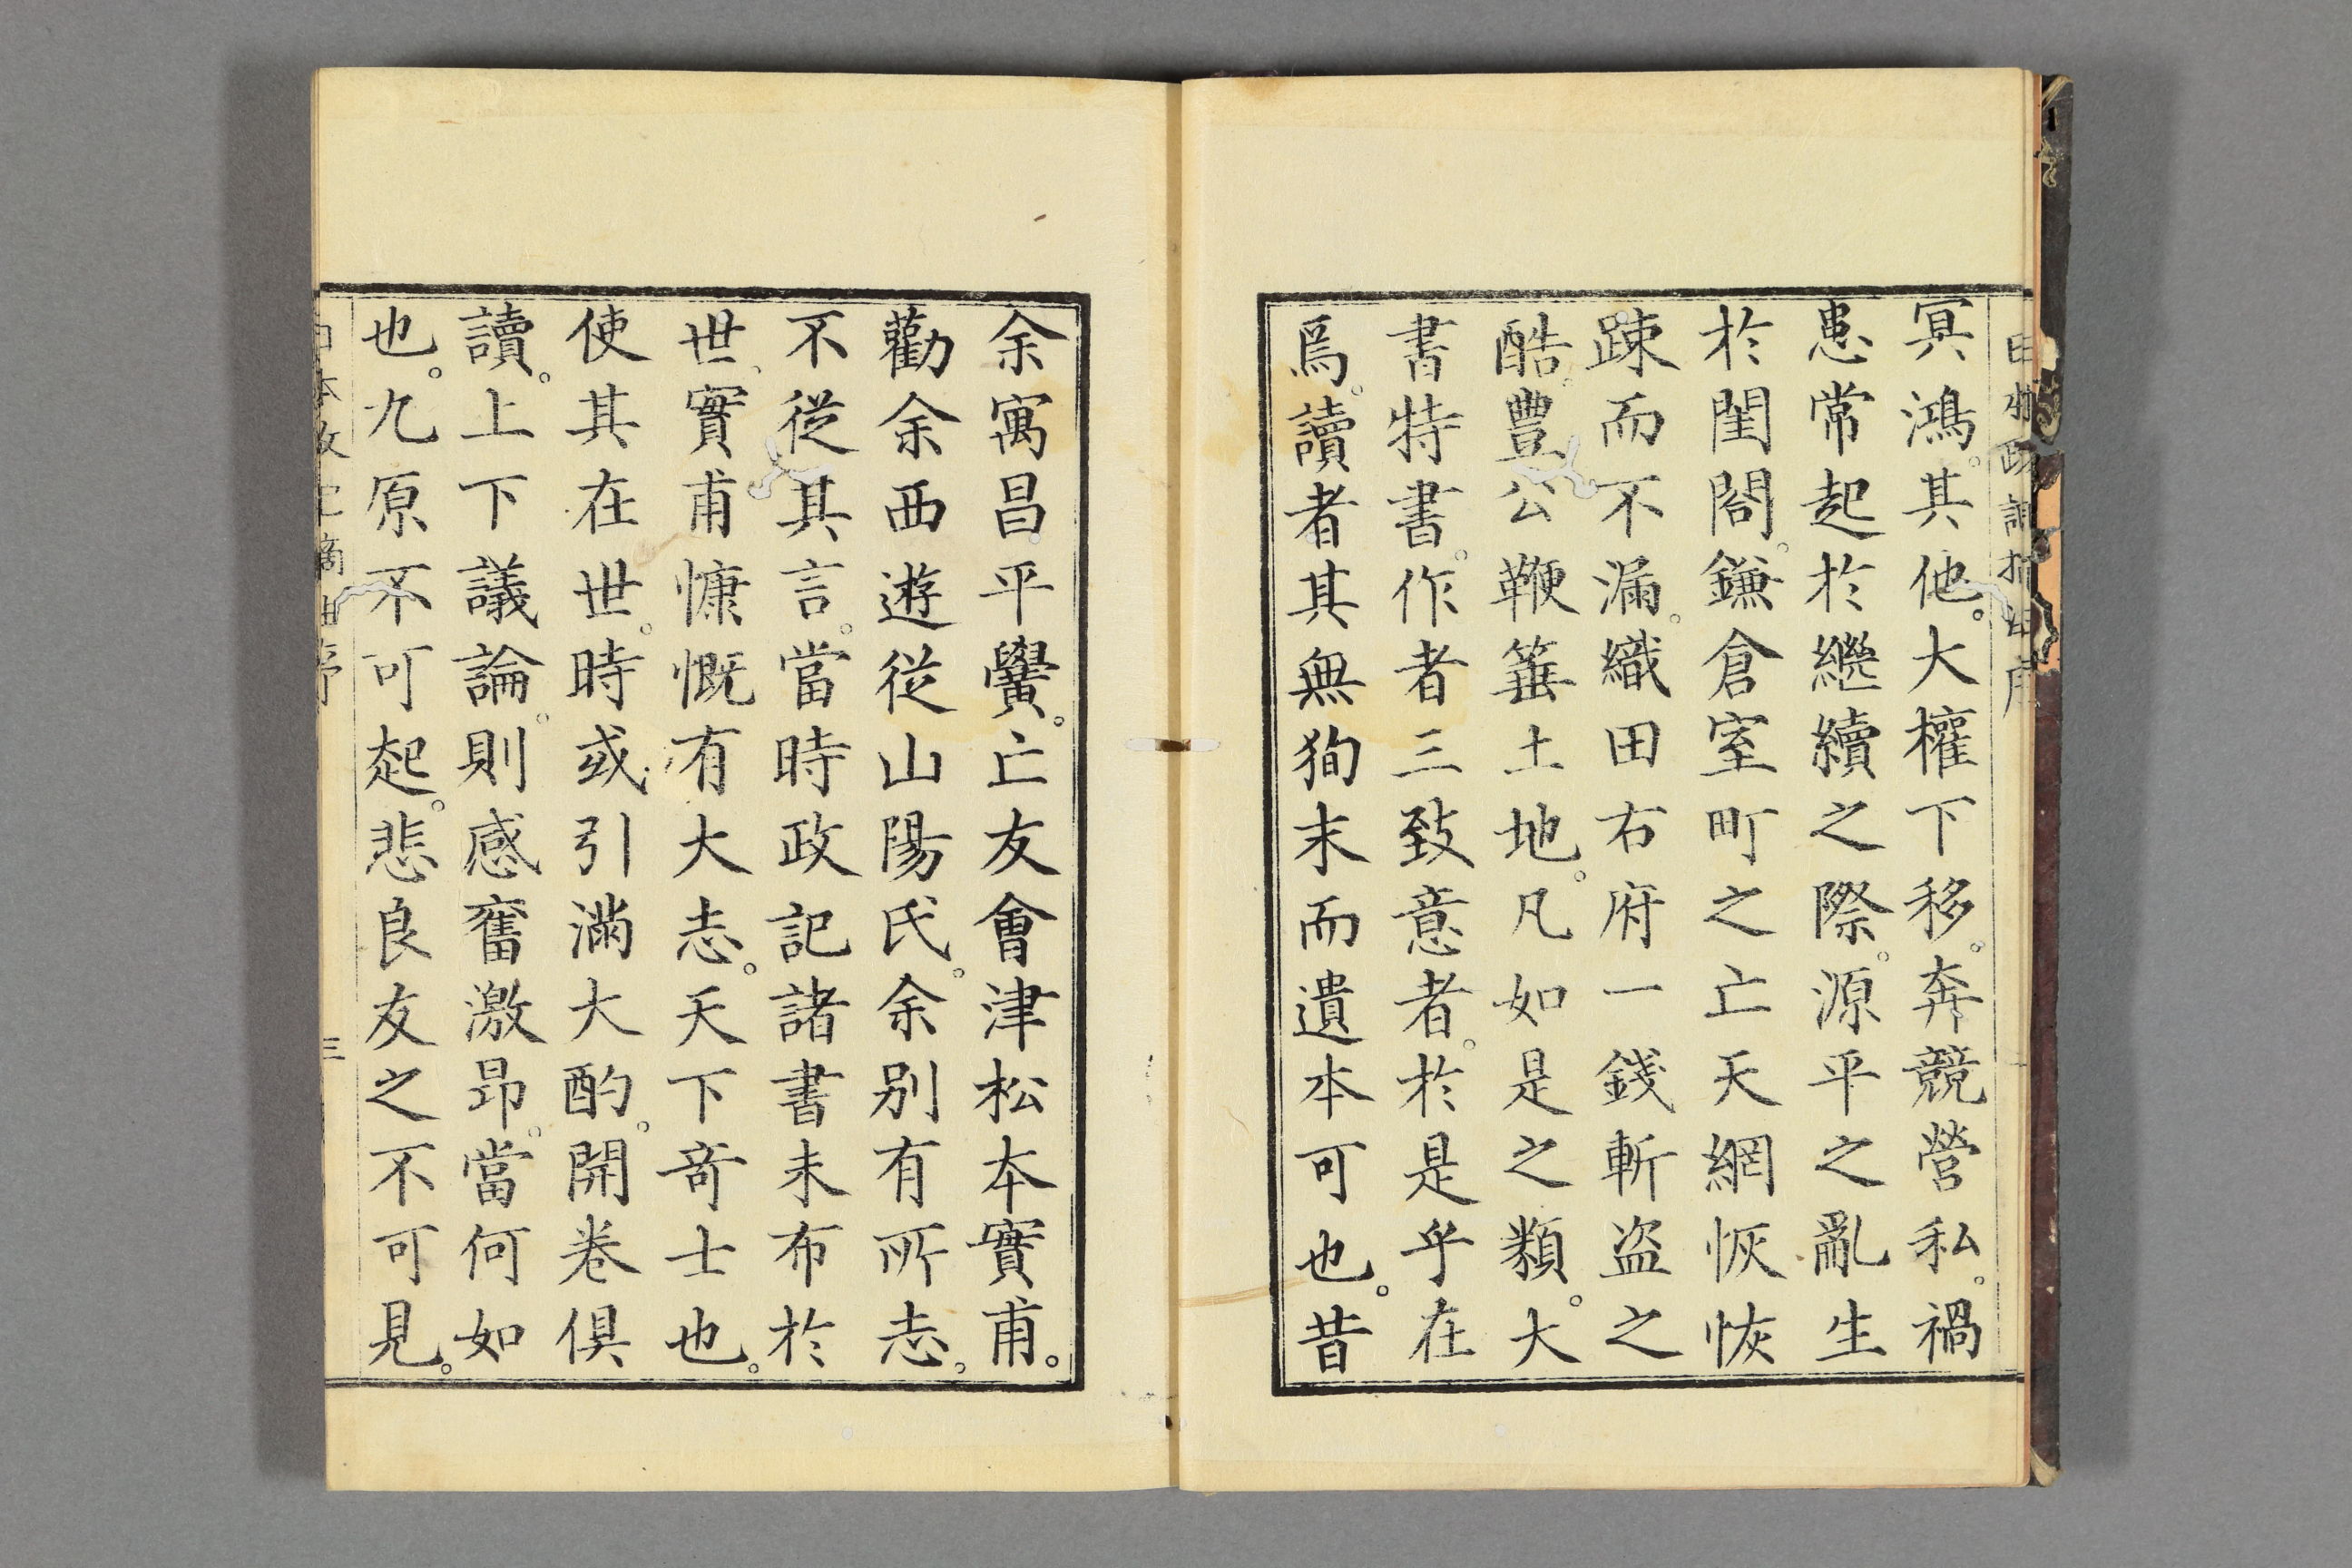 冥鴻。其他。大權下移。奔競營私。禍
患常起於繼續之際。源平之亂生
於閨閤。鎌倉室町之亡天網恢恢
踈而不漏。織田右府一錢斬盗之
酷。豊公鞭箠土地。凡如是之類。大
書特書。作者三致意者。於是乎在
焉。讀者其無徇末而遺本可也。昔
余寓昌平黌。亡友會津松本實甫。
勸余西遊從山陽氏。余別有所志。
不從其言。當時政記諸書未布於
世、實甫慷慨有大志。天下奇士也。
使其在世。時或引滿大酌。開卷俱
讀。上下議論。則感奮激昻。當何如
也。九原不可起。悲良友之不可見。
三